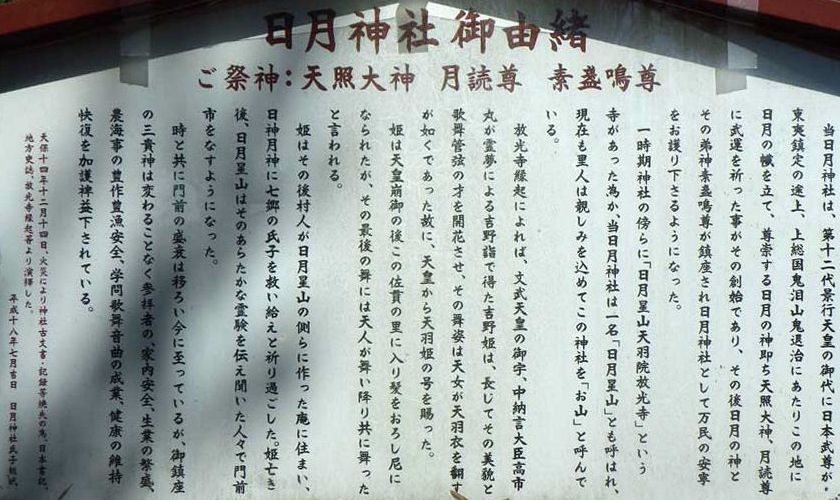 日月神社御由緒
ご祭神：天照大神　月読尊　素盞鳴尊
当日月神社は、第十二代景行天皇の御代に日本武尊が、
東夷鎮定の途上、上総国鬼泪山鬼退治にあたりこの地に
日月の幟を立て、尊崇する日月の神即ち天照大神、月読尊
に武運を祈った事がその創始であり、その後日月の神と
その弟神素盞鳴尊が鎮座され日月神社として万民の安寧
をお護り下さるようになった。
一時期神社の傍らに「日月星山天羽院放光寺」という
寺があった為か、当日月神社は一名「日月星山」とも呼ばれ、
現在も里人は親しみを込めてこの神社を「お山」と呼んで
いる。
放光寺縁起によれば、文武天皇の御宇、中納言大臣高市
丸が霊夢による吉野詣で得た吉野姫は、長じてその美貌と
歌舞管弦の才を開花させ、その舞姿は天女が天羽衣を翻す
が如くであった故に、天皇から天羽姫の号を賜った。
姫は天皇崩御の後この佐貫の里に入り髪をおろし尼に
なられたが、その最後の舞には天人が舞い降り共に舞った
と言われる。
姫はその後村人が日月星山の側らに作った庵に住まい、
日神月神に七郷の氏子を救い給えと祈り過ごした。姫亡き
後、日月星山はそのあらたかな霊験を伝え聞いた人々で門前
市をなすようになった。
時と共に門前の盛衰は移ろい今に至っているが、御鎮座
の三貴神は変わることなく参拝者の、家内安全、生業の繁盛、
農海事の豊作豊漁安全、学問歌舞音曲の成業、健康の維持
快復を加護裨益下されている。
天保十四年十二月十四日、火災により神社古文書・記録等焼失の為、日本書記、
地方史誌、放光寺縁起等より演繹した。
平成十八年七月吉日　日月神社氏子総代